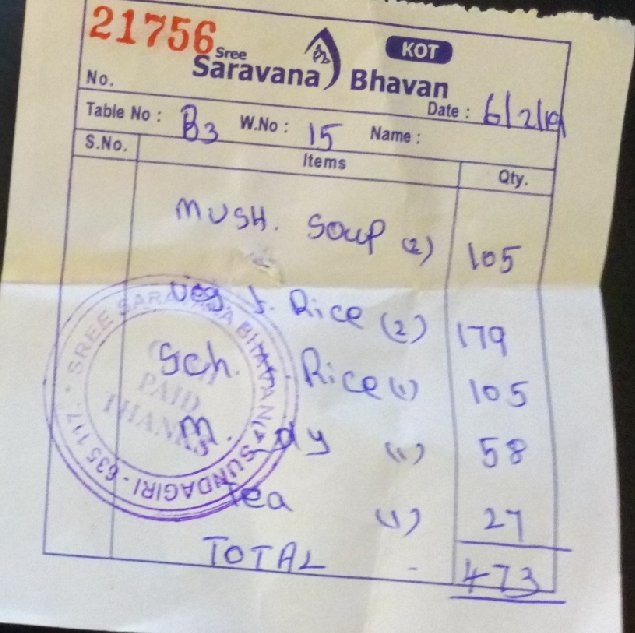 21756
KOT
Sree
Saravana Bhavan
No.
Date : 6/2/19
Table No : B3 W.No : 15 Name :
S.No. Items Qty.
MUSH. Soup (2) 105
Veg f. Rice (2) 179
Sch. Rice (1) 105
M. (1) 58
Tea (1) 27
TOTAL - 473
SREE SARAVANA BHAVAN * SUNDAGIRI - 635 117. *
PAID
THANKS